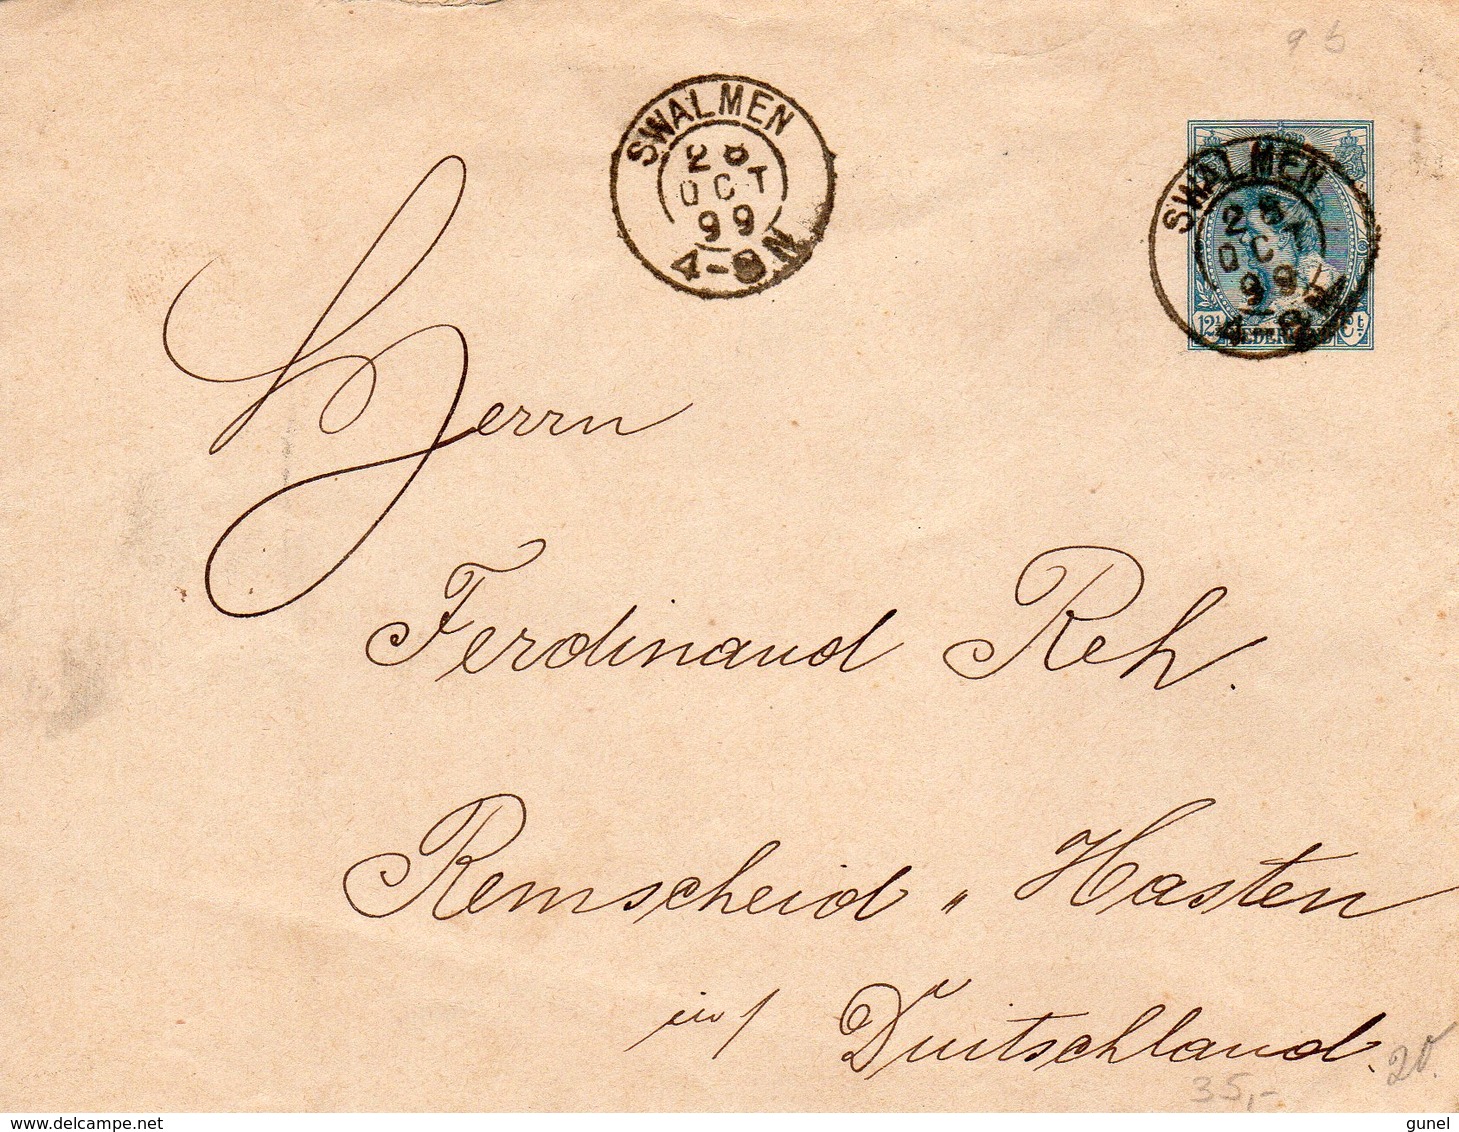 9 5
SWALMEN
OCT
99
4-8N
SWALMEN
OCT
99
4-8N
12½ NEDERLAND Ct.
Herrn
Ferdinand Reh.
Remscheid „ Hasten
in/ Duitschland.
20.
35,-
delcampe.net
gunel